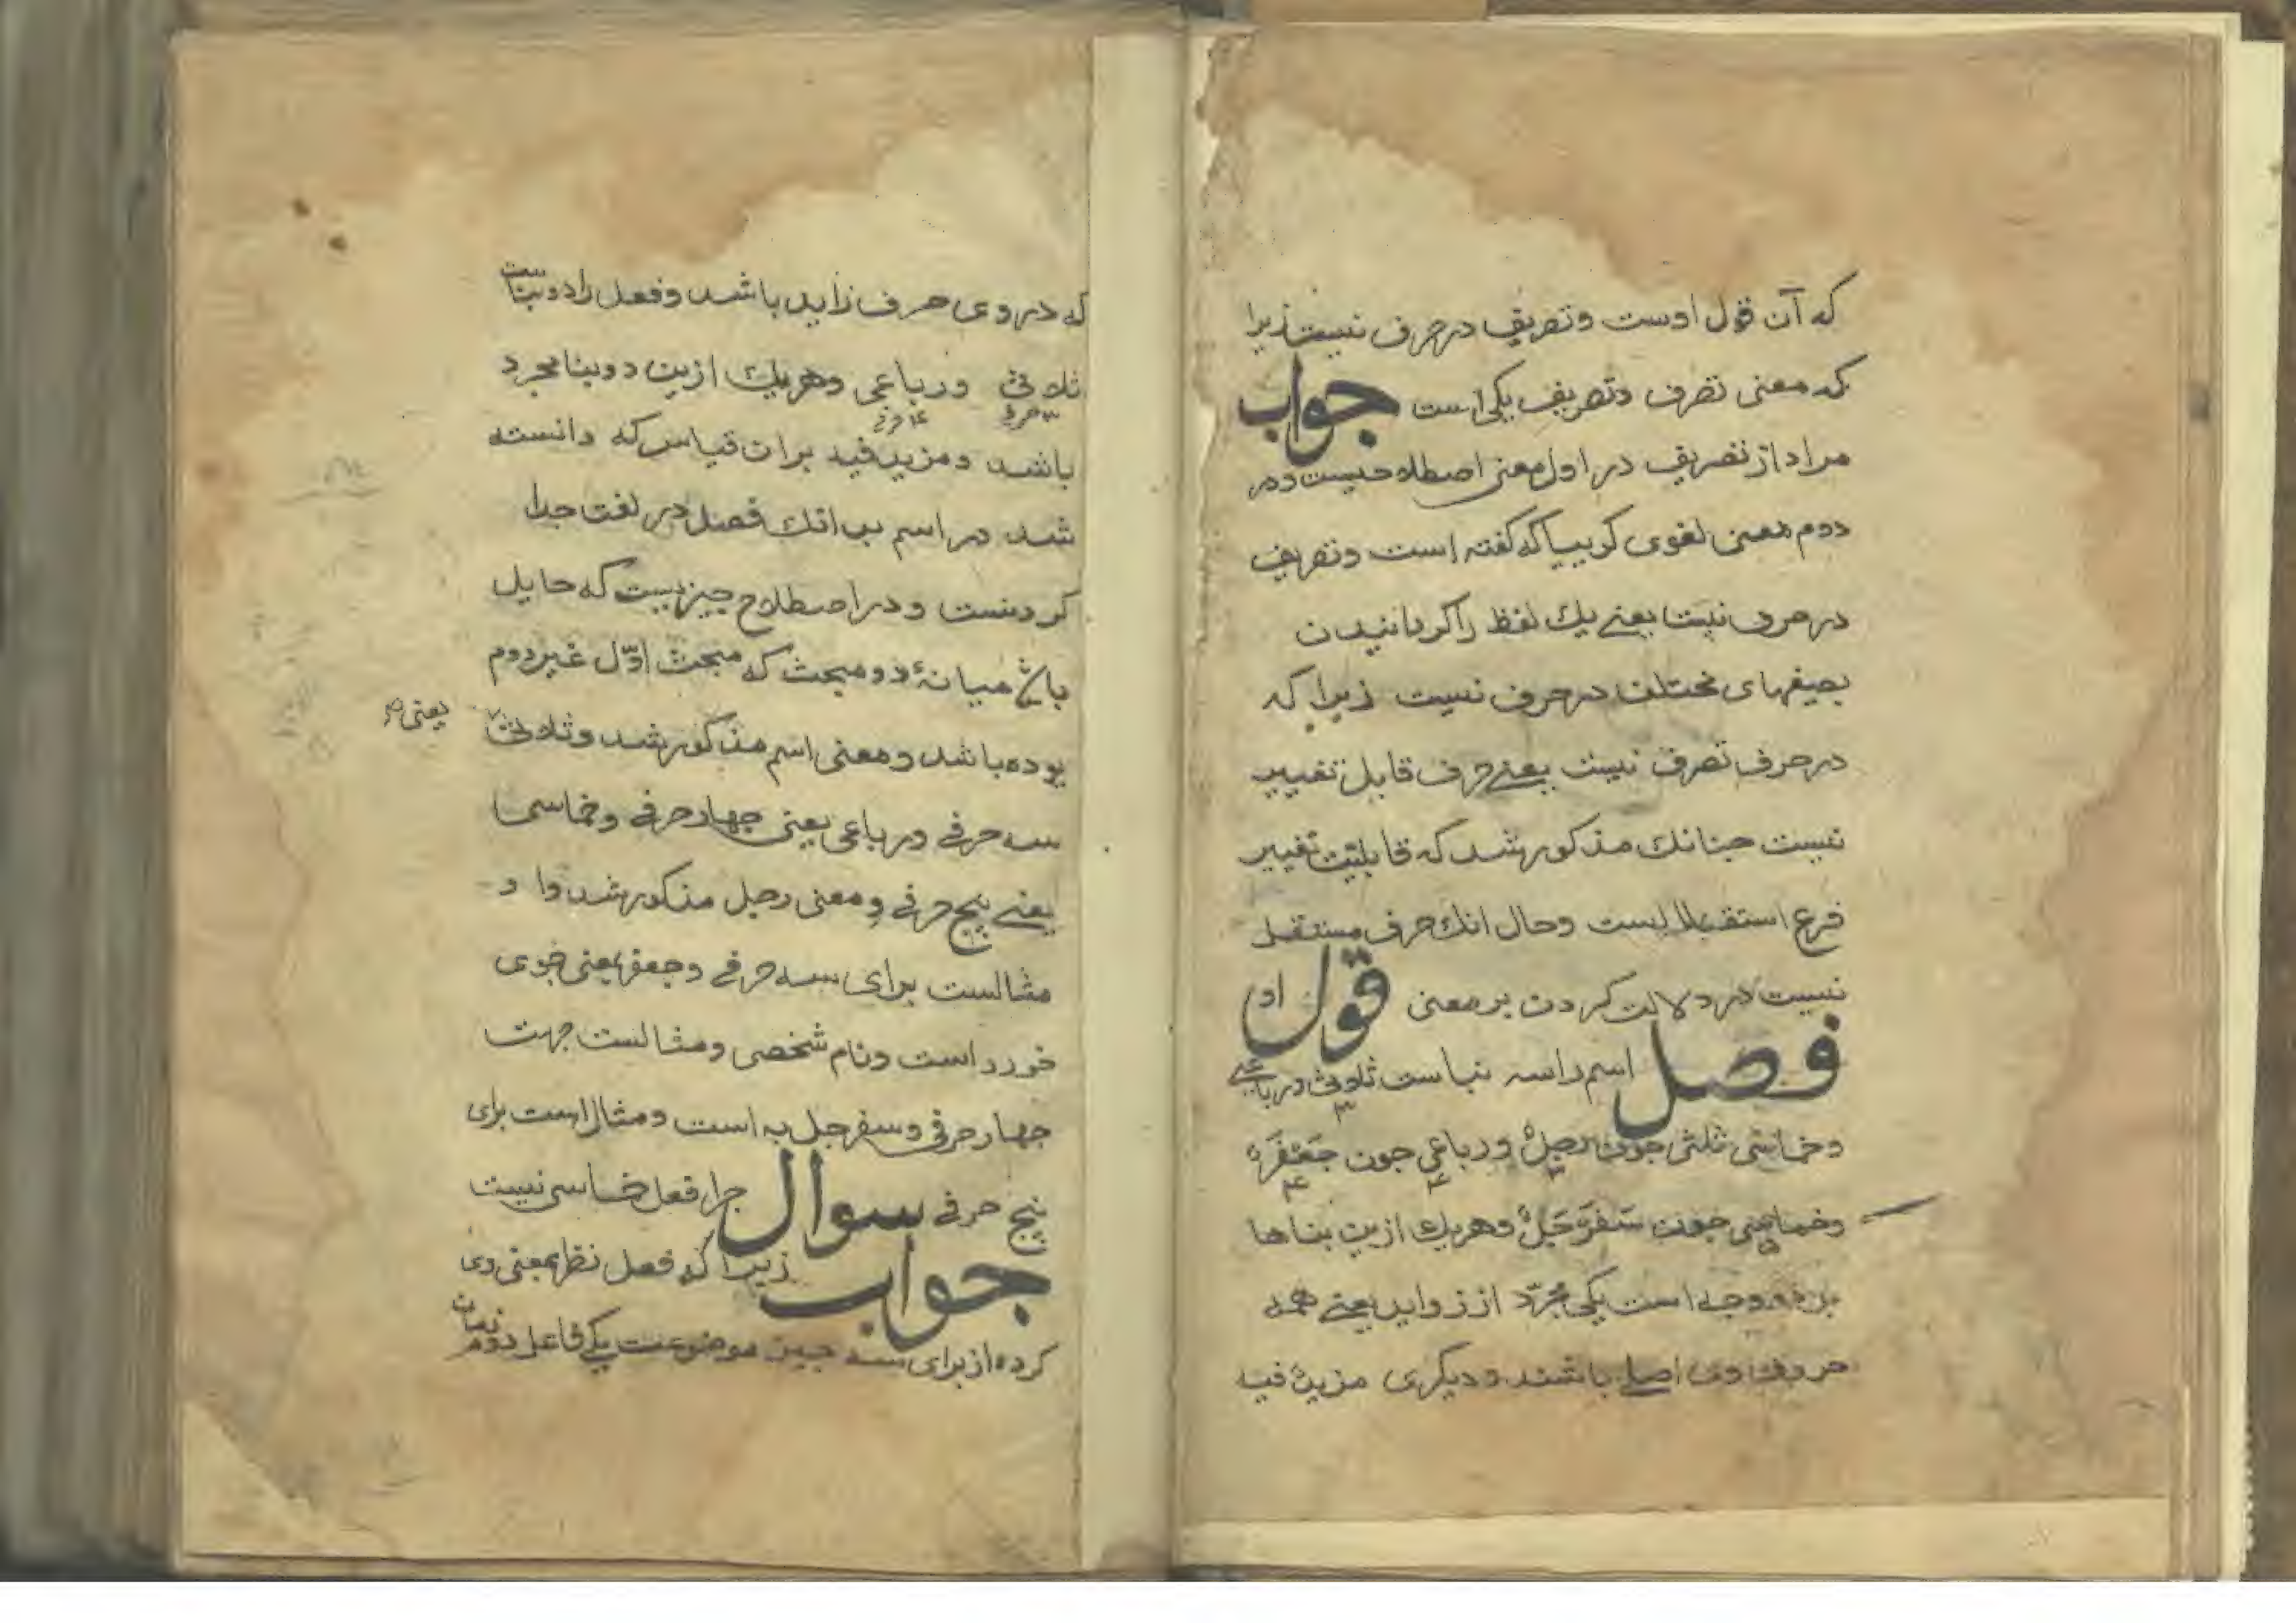 که آن قول اوست وتصریف درحرف نیست زیرا
که معنی تصرف وتصریف یکی است جواب
مراد از تصریف در اول معنی اصطلاحیست ودر
دوم معنی لغوی کوییا که کفته است وتصریف
درحرف نیست یعنے یك لفظ را کردانیدن
بصیغهای مختلف درحرف نسیت زیرا که
درحرف تصرف نیست یعنے حرف قابل تغییر
نیست جنانك مذکور شد که قابلیّت تغییر
فرع استقلالیست وحال انك حرف مستقل
نیست در دلالت کردن بر معنی قول او
فصل اسم را سه بناست ثلاثی ورباعے
وخماسی ثلثی جون رجلٌ ورباعی جون جَعْفَرٌ
وخماسی جون سَفَرْجَلٌ وهریك ازین بناها
بر دو وجه است یکی مجرّد از زواید یعنے همه
حروف وی اصلے باشند ودیکری مزیدٌ فیه
که در وی حرف زاید باشد وفعل را دو بناست
ثلاثی ورباعی وهریك ازین دو بنا مجرد
۳ حرفی ۴ حرفی
باشد ومزید فیه بران قیاس که دانسته
شد در اسم بدانك فصل در لغت جدا
کردنست ودر اصطلاح چیزیست که حایل
باشد میانهٔ دو مبحث که مبحث اوّل غیر دوم
بوده باشد ومعنی اسم مذکور شد وثلاثی یعنی
سه حرفے ورباعی یعنی چهار حرفے وخماسی
یعنے پنج حرفے ومعنی رجل مذکور شد واو
مثالست برای سه حرفے وجعفر یعنی جوی
خورد است ونام شخصی ومثالست جهت
جهار حرفی وسفرجل به است ومثال است برای
پنج حرفے سوال جرا فعل خماسی نیست
جواب زیرا که فعل نظر بمعنی وی
کرده از برای سه جیز موضوعست یکے فاعل دوم زمان